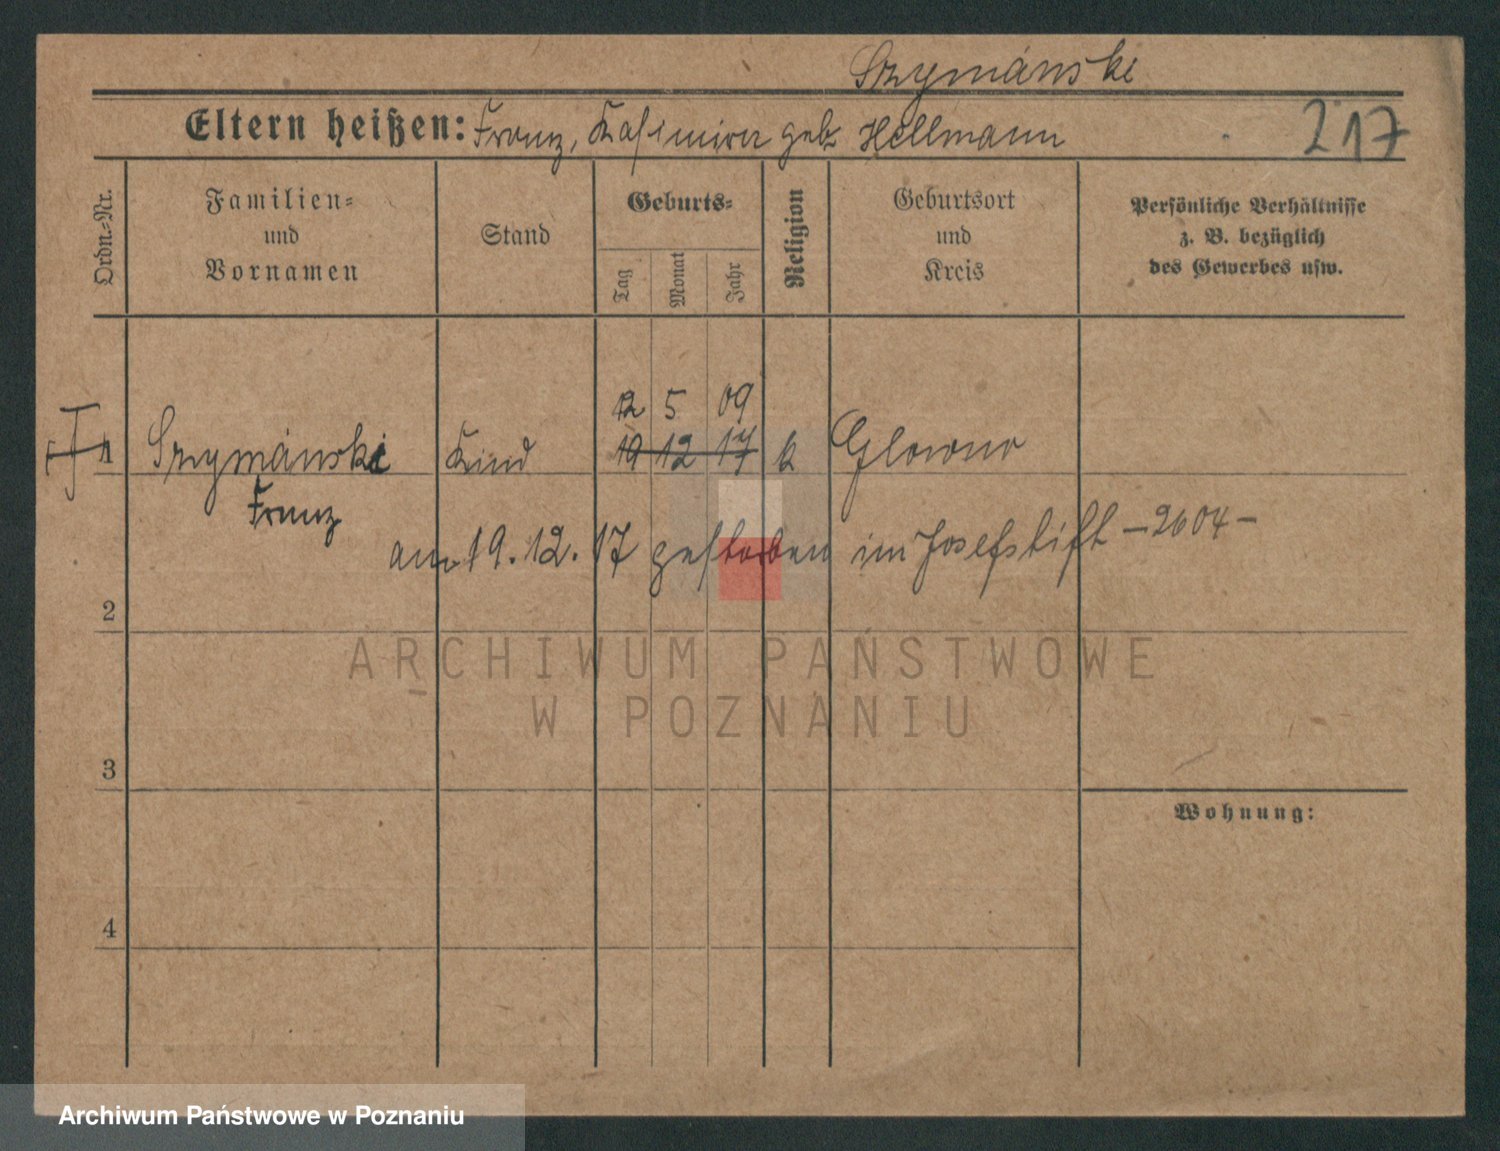 Szymánski
Eltern heißen: Franz, Kasimira geb Hellmann 217
Ordn.=Nr.
Familien=
und
Vornamen
Stand
Geburts=
Tag
Monat
Jahr
Religion
Geburtsort
und
Kreis
Persönliche Verhältnisse
z. B. bezüglich
des Gewerbes usw.
12 5 09
1 Szymánski Kind 19 12 17 k Glowno
Franz
am 19.12.17 gestorben im Josefstift – 2604 –
2
ARCHIWUM PAŃSTWOWE
W POZNANIU
3
Wohnung:
4
Archiwum Państwowe w Poznaniu